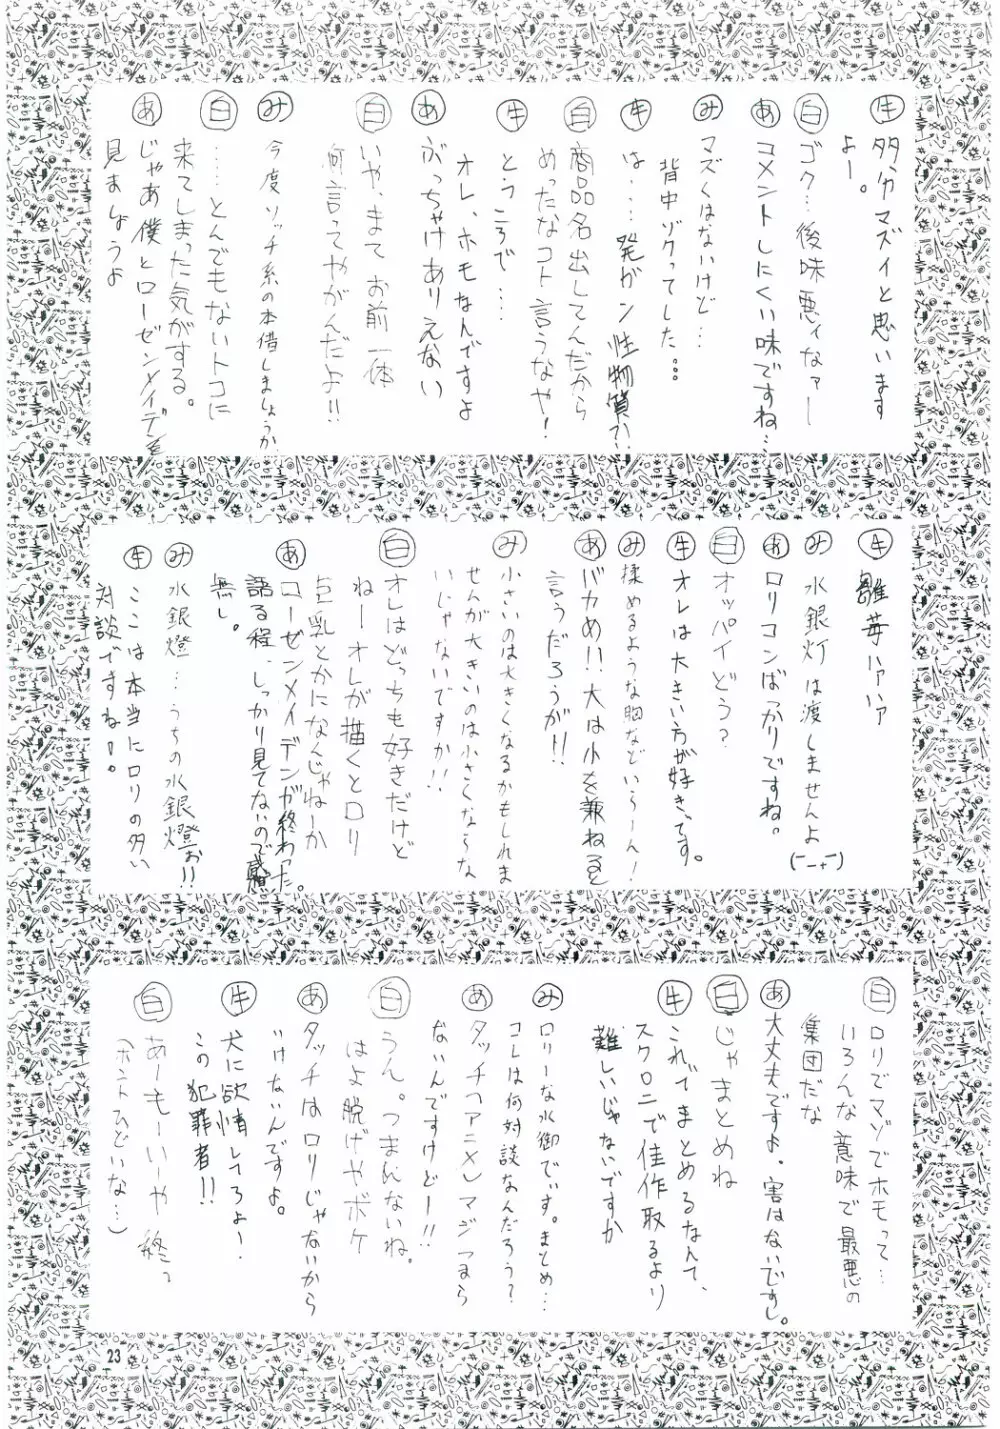 牛 多分マズイと思います
よー。
白 ゴク…後味悪ィなァー
あ コメントしにくい味ですね…
み マズくはないけど…
背中ゾクってした…
牛 は…発ガン性物質が!
白 商品名出してんだから
めったなコト言うなや!
牛 ところで…
オレ、ホモなんですよ
あ ぶっちゃけありえない
白 いや、まて お前一体
何言ってやがんだよ!!
み 今度ソッチ系の本借しましょうか
白 ……とんでもないトコに
来てしまった気がする。
あ じゃあ僕とローゼンメイデンを
見ましょうよ
牛 雛苺ハァハァ
み 水銀灯は渡しませんよ
(￣ー+￣)
あ ロリコンばっかりですね。
白 オッパイどう?
牛 オレは大きい方が好きです。
み 揉めるような胸などいら～ん!
あ バカめ!!大は小を兼ねると
言うだろうが!!
み 小さいのは大きくなるかもしれま
せんが大きいのは小さくな～な
いじゃないですか!!
白 オレはどっちも好きだけど
ねーオレが描くとロリ
巨乳とかになんじゃねーか
あ ローゼンメイデンが終わった。
語る程、しっかり見てないので感想
無し。
み 水銀燈…うちの水銀燈ぉ!!
牛 ここは本当にロリの多い
対談ですね!。
白 ロリでマゾでホモって…
いろんな意味で最悪の
集団だな
あ 大丈夫ですよ。害はないですし。
白 じゃまとめね
牛 これでまとめるなんて、
スクロニで佳作取るより
難しいじゃないですか
み ロリーな水御でぃす。まとめ…
コレは何対談なんだろう?
あ タッチ(アニメ)マジつまら
ないんですけどー!!
白 うん。つまんないね。
はよ脱げやボケ
あ タッチはロリじゃないから
いけないんですよ。
牛 犬に欲情してろよー!
この犯罪者!!
白 あーもーいーや 終っ
(ホントひどいな…)
23